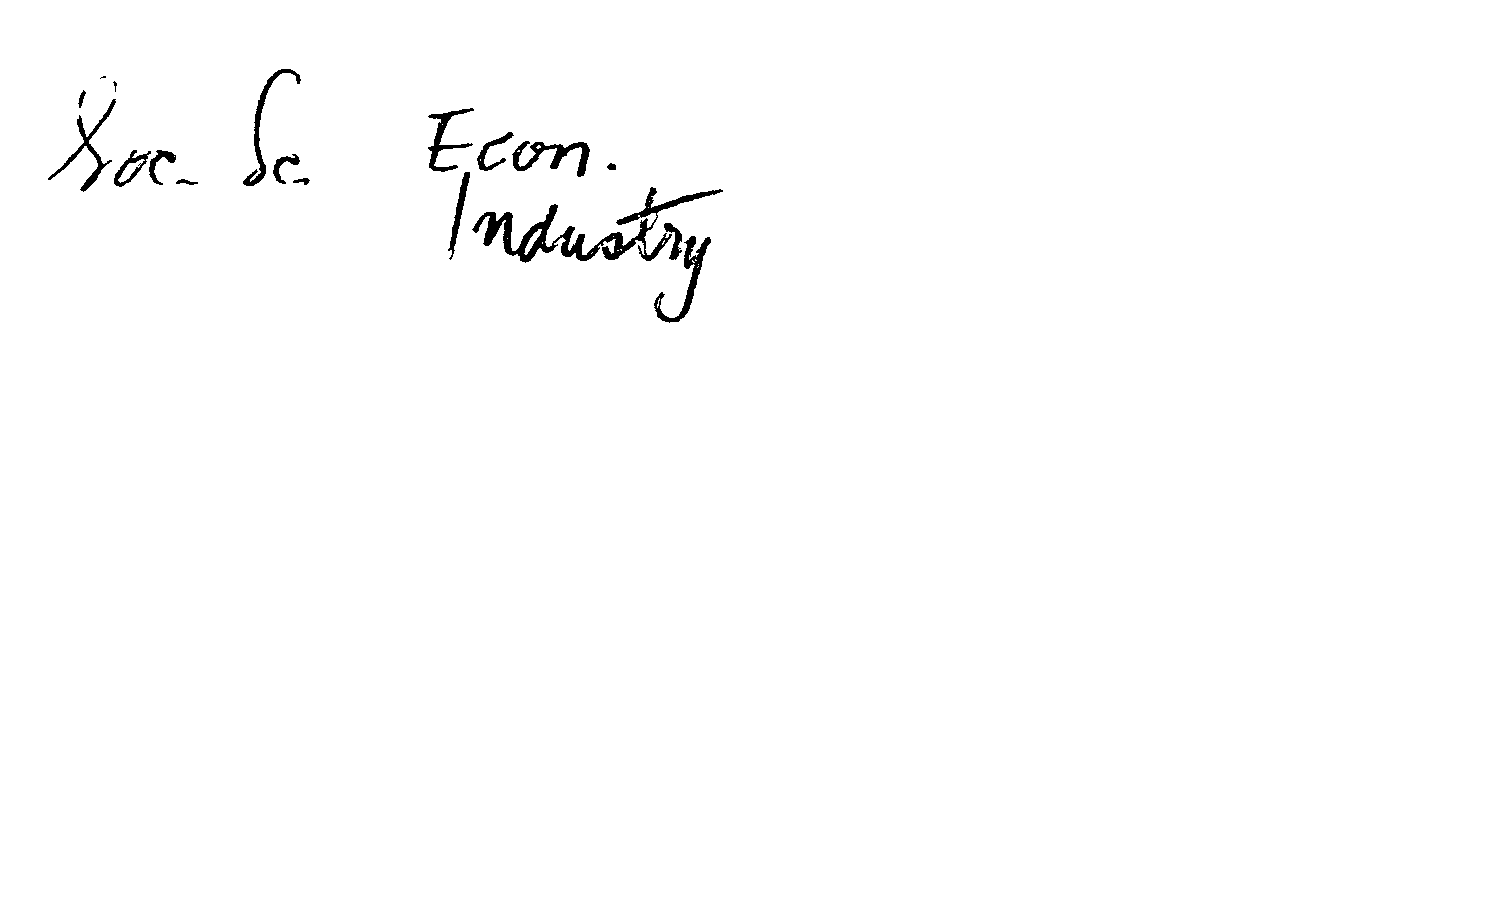 Soc. Sc. Econ.
Industry